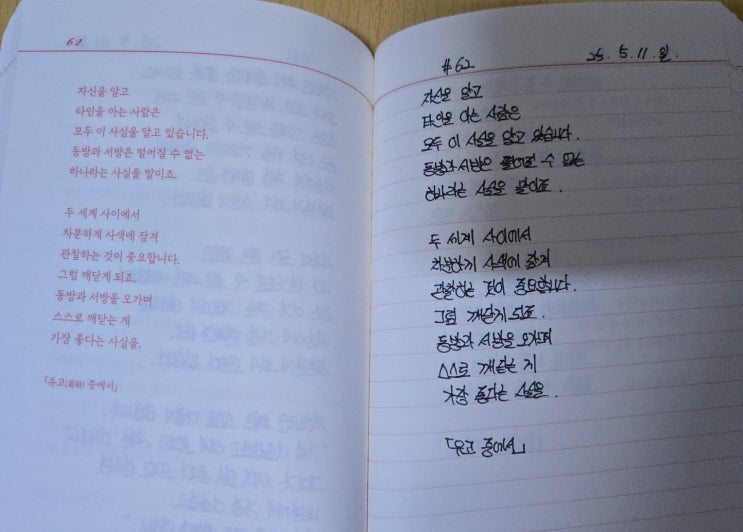 62
자신을 알고
타인을 아는 사람은
모두 이 사실을 알고 있습니다.
동방과 서방은 떨어질 수 없는
하나라는 사실을 말이죠.
두 세계 사이에서
차분하게 사색에 잠겨
관찰하는 것이 중요합니다.
그럼 깨닫게 되죠.
동방과 서방을 오가며
스스로 깨닫는 게
가장 좋다는 사실을.
「유고(遺稿) 중에서」
#62 25. 5. 11. 일.
자신을 알고
타인을 아는 사람은
모두 이 사실을 알고 있습니다.
동방과 서방은 떨어질 수 없는
하나라는 사실을 말이죠.
두 세계 사이에서
차분하게 사색에 잠겨
관찰하는 것이 중요합니다.
그럼 깨닫게 되죠.
동방과 서방을 오가며
스스로 깨닫는 게
가장 좋다는 사실을.
「유고 중에서」